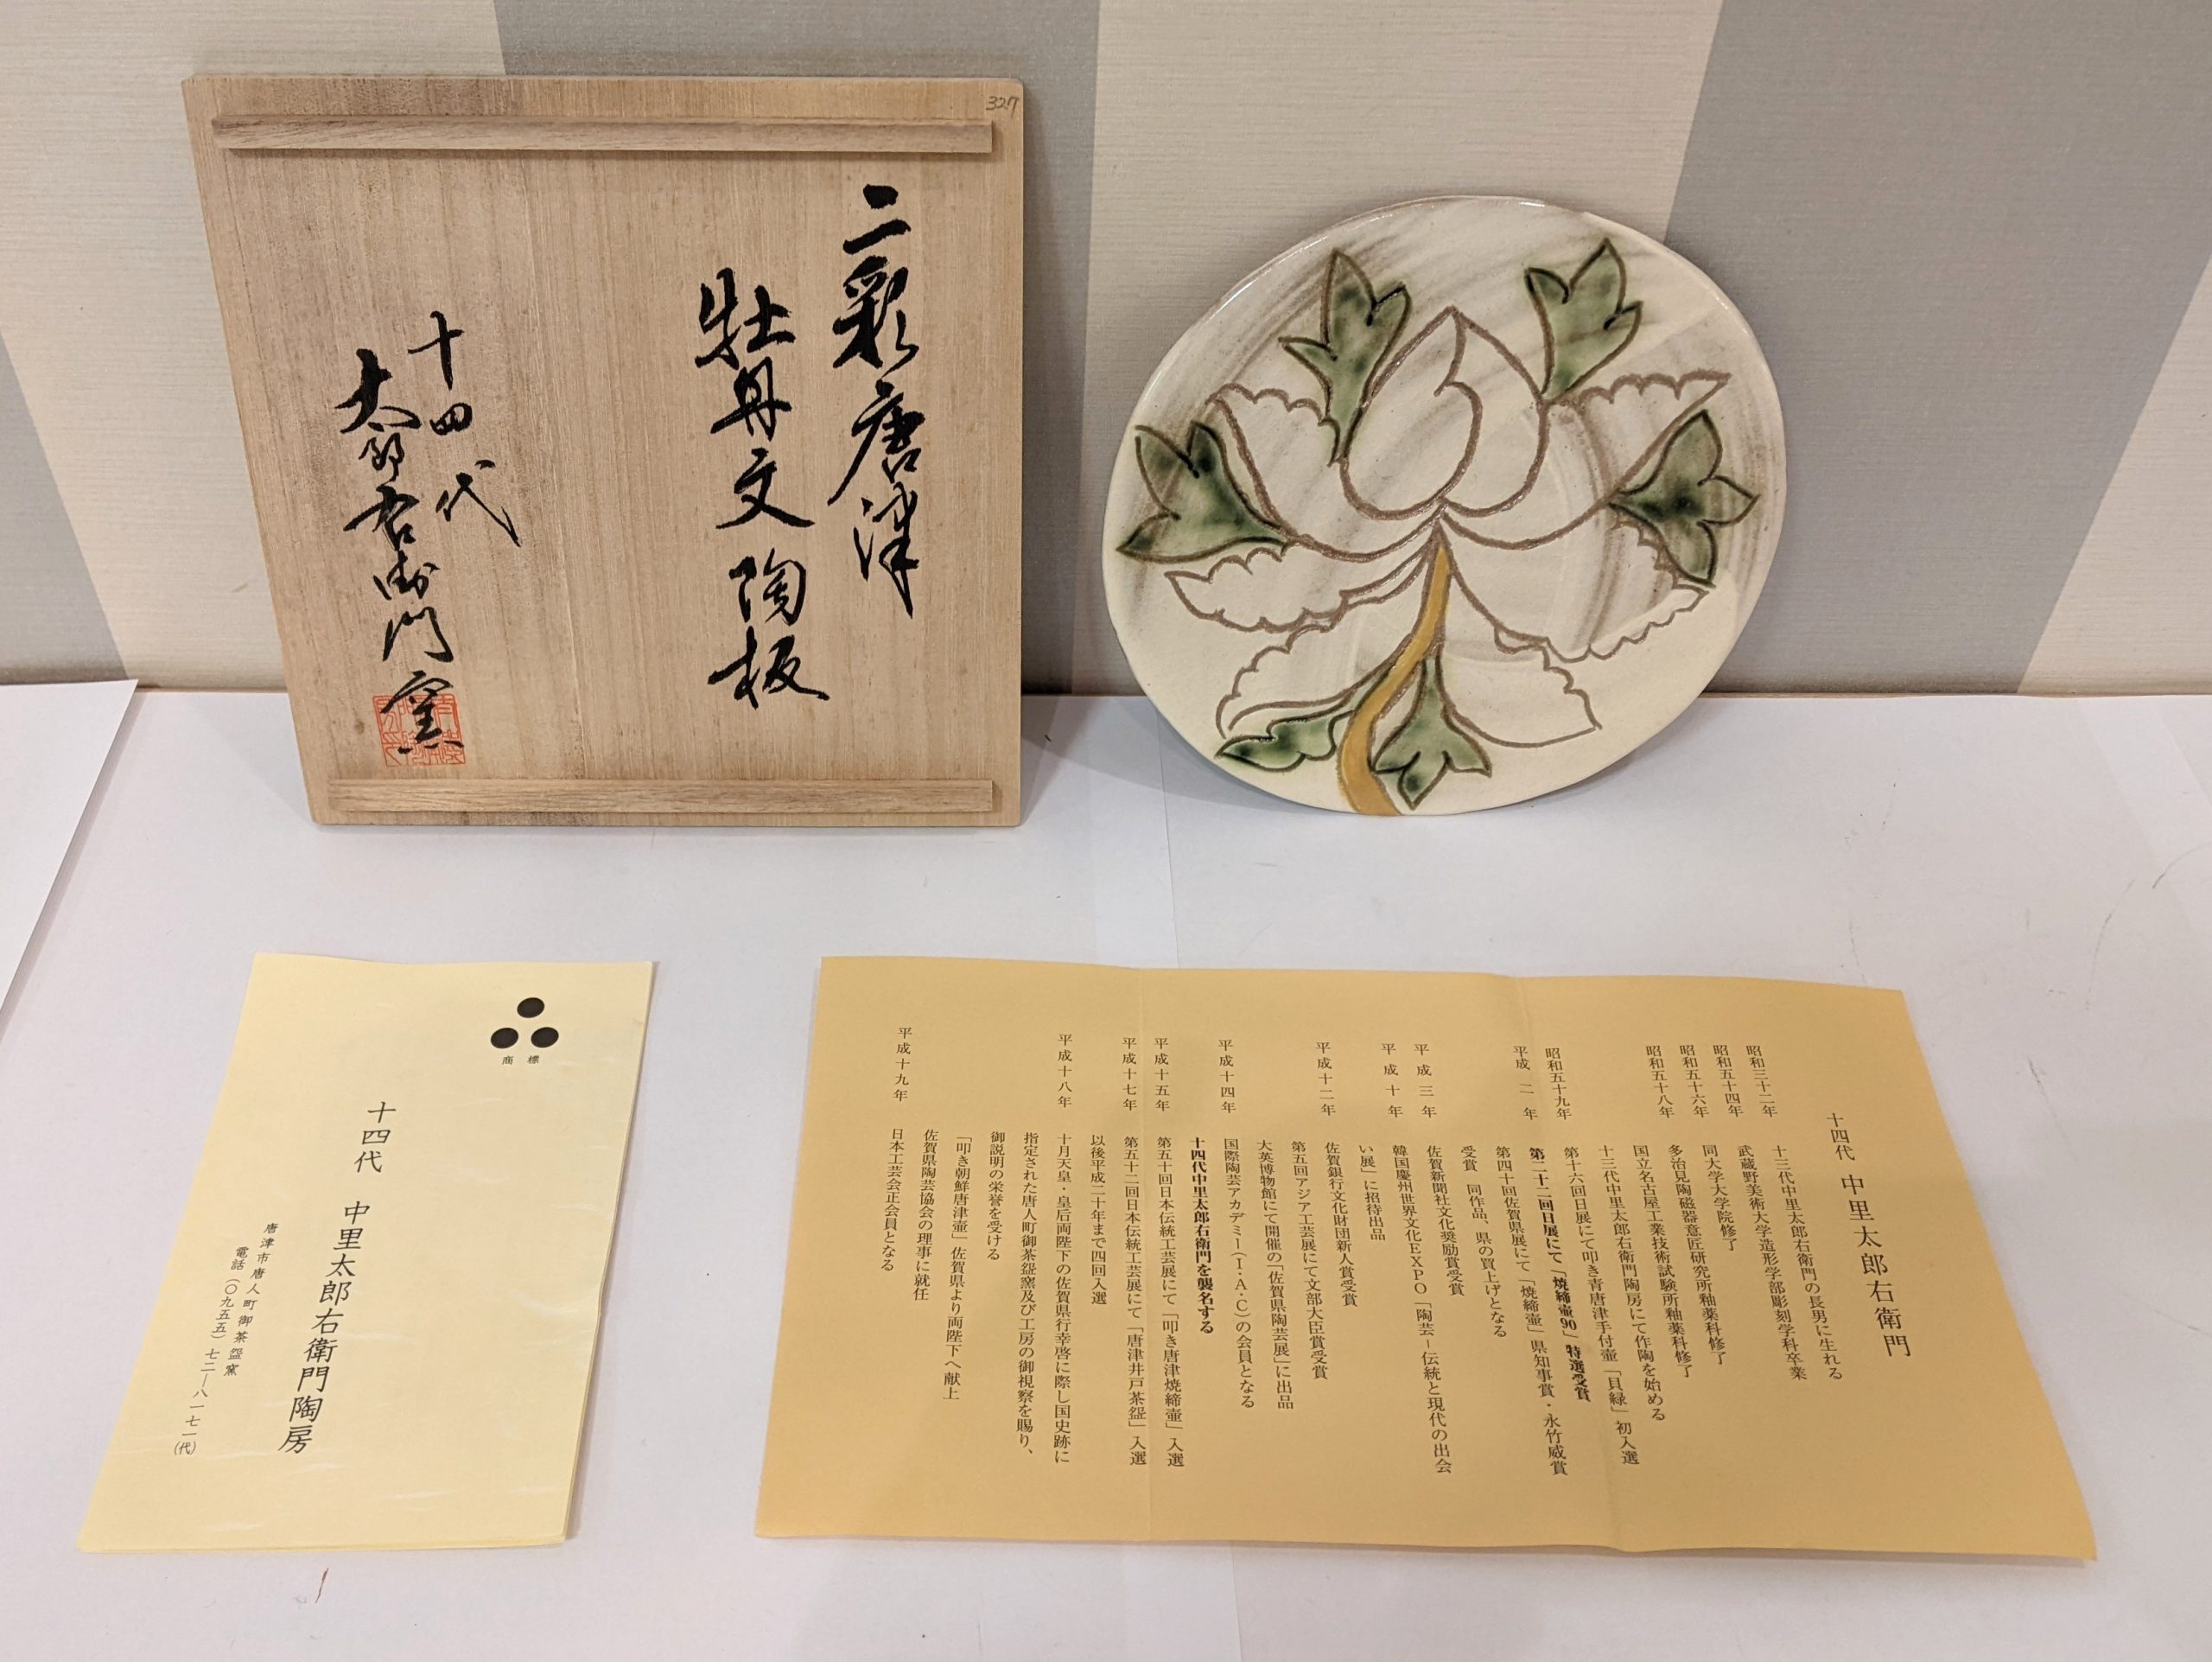 327
二彩唐津
牡丹文陶板
十四代
太郎右衛門窯
商標
十四代 中里太郎右衛門陶房
唐津市唐人町御茶盌窯
電話(〇九五五)七二―八一七一(代)
十四代 中里太郎右衛門
昭和三十二年 十三代中里太郎右衛門の長男に生れる
昭和五十四年 武蔵野美術大学造形学部彫刻学科卒業
昭和五十六年 同大学大学院修了
昭和五十八年 多治見陶磁器意匠研究所釉薬科修了
国立名古屋工業技術試験所釉薬科修了
十三代中里太郎右衛門陶房にて作陶を始める
昭和五十九年 第十六回日展にて叩き青唐津手付壷「貝緑」初入選
平成二年 第二十二回日展にて「焼締壷90」特選受賞
第四十回佐賀県展にて「焼締壷」県知事賞・永竹威賞
受賞 同作品、県の買上げとなる
平成三年 佐賀新聞社文化奨励賞受賞
平成十年 韓国慶州世界文化EXPO「陶芸―伝統と現代の出会
い展」に招待出品
平成十二年 佐賀銀行文化財団新人賞受賞
第五回アジア工芸展にて文部大臣賞受賞
大英博物館にて開催の「佐賀県陶芸展」に出品
平成十四年 国際陶芸アカデミー(I・A・C)の会員となる
十四代中里太郎右衛門を襲名する
平成十五年 第五十回日本伝統工芸展にて「叩き唐津焼締壷」入選
平成十七年 第五十二回日本伝統工芸展にて「唐津井戸茶盌」入選
以後平成二十年まで四回入選
平成十八年 十月天皇・皇后両陛下の佐賀県行幸啓に際し国史跡に
指定された唐人町御茶盌窯及び工房の御視察を賜り、
御説明の栄誉を受ける
「叩き朝鮮唐津壷」佐賀県より両陛下へ献上
佐賀県陶芸協会の理事に就任
平成十九年 日本工芸会正会員となる